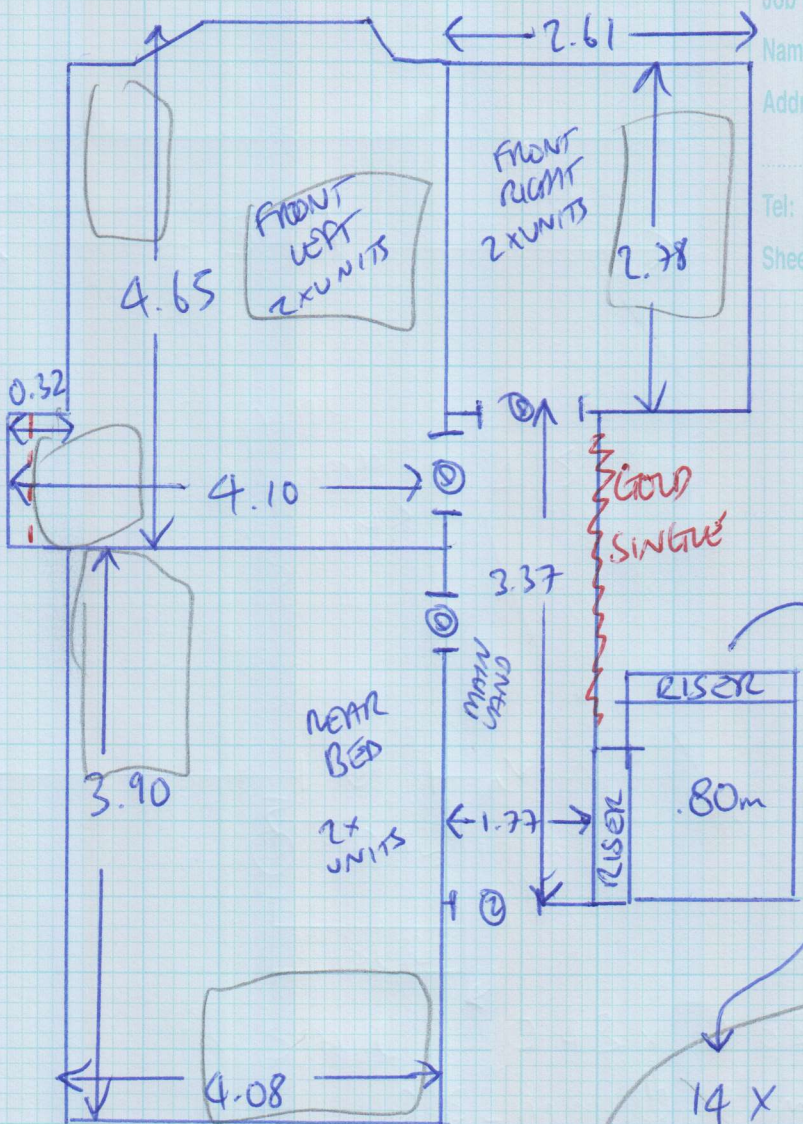 Job
Nam
Addr
Tel:
Shee
2.61
FRONT
LEFT
2XUNITS
FRONT
RIGHT
2XUNITS
2.78
4.65
0.32
4.10
GOLD
SINGLE
3.37
MAIN
LAND
RISER
.80m
RISER
REAR
BED
2X
UNITS
3.90
1.77
2
4.08
14 X